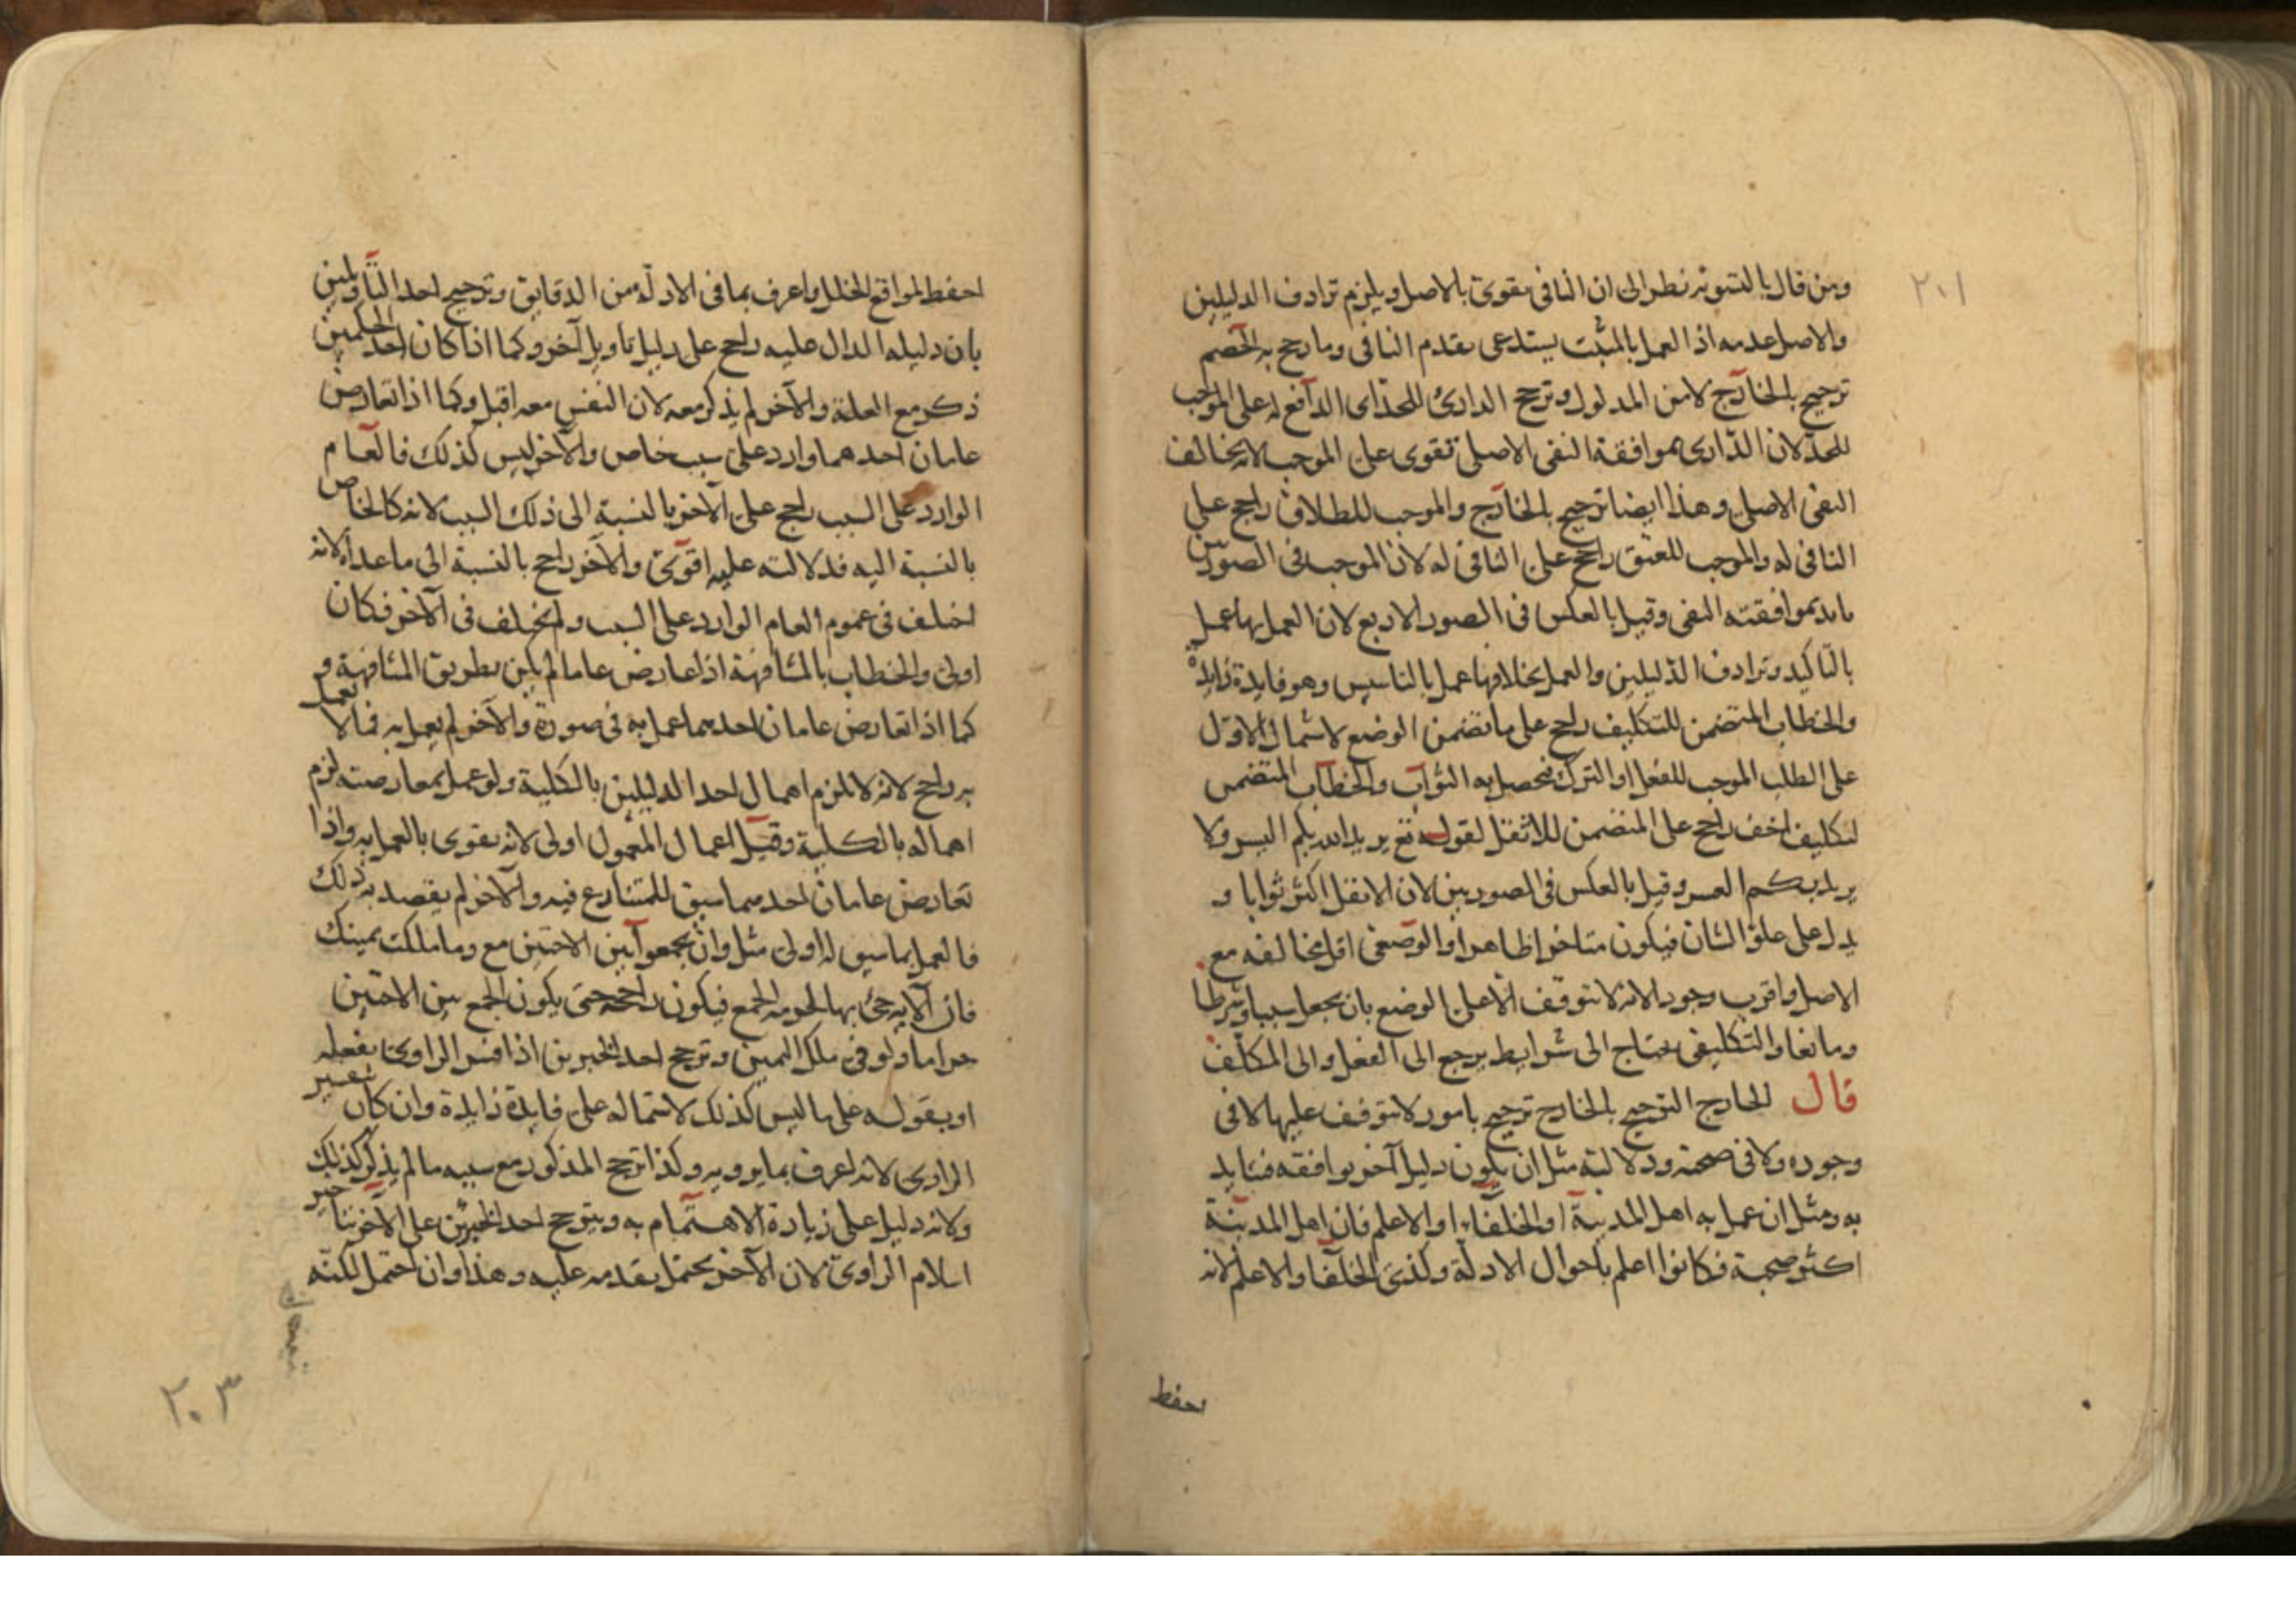 ٢٠١
ومن قال بالتسوية نظر الى ان النافى يقوى بالاصل ويلزم ترادف الدليلين
والاصل عدمه اذ العمل بالمثبت يستدعى تقدم النافى وما رجح به الخصم
ترجيح بالخارج لا من المدلول وترجح الدارئ للحد اى الدافع له على الموجب
للحد لان الدارى بموافقة النفى الاصلى تقوى على الموجب لانه يخالف
النفى الاصلى وهذا ايضا ترجيح بالخارج والموجب للطلاق راجح على
النافى له والموجب للعتق راجح على النافى له لان الموجب فى الصورتين
بموافقته النفى وقيل بالعكس فى الصور الاربع لان العمل بها عمل
بالتاكيد وترادف الدليلين والعمل بخلافها عمل بالتاسيس وهو فايدة زايدة
والخطاب المتضمن للتكليف راجح على ما تضمن الوضع لاشتمال الاول
على الطلب الموجب للفعل او الترك فحصل به الثواب والخطاب المتضمن
لتكليف اخف راجح على المتضمن للاثقل لقوله تع يريد الله بكم اليسر ولا
يريد بكم العسر وقيل بالعكس فى الصورتين لان الاثقل اكثر ثوابا و
يدل على علو الشان فيكون متاخرا ظاهرا والوضعى اقل مخالفة مع
الاصل واقرب وجودا لانه لا يتوقف الا على الوضع بان يجعل سببا وشرطا
ومانعا والتكليفى يحتاج الى شرايط يرجع الى الفعل والى المكلف
قال الخارج الترجيح بالخارج ترجيح بامور لا يتوقف عليها لا فى
وجوده ولا فى صحته ودلالته مثل ان يكون دليل آخر يوافقه فتايد
به ومثل ان عمل به اهل المدينة او الخلفاء او الاعلم فان اهل المدينة
اكثر صحبة فكانوا اعلم باحوال الادلة وكذى الخلفا والاعلم لانه
احفظ
احفظ لمواقع الخلل واعرف بما فى الادلة من الدقايق وترجيح احد التاويلين
بان دليله الدال عليه راجح على دليل تاويل آخر وكما اذا كان احد الحكمين
ذكر مع العلة والآخر لم يذكر معه لان النفس معه اقبل وكما اذا تعارض
عامان احدهما وارد على سبب خاص والآخر ليس كذلك فالعام
الوارد على السبب راجح على الآخر بالنسبة الى ذلك السبب لانه كالخاص
بالنسبة اليه فدلالته عليه اقوى والآخر راجح بالنسبة الى ما عداه لانه
اختلف فى عموم العام الوارد على السبب ولم يختلف فى الآخر فكان
اولى والخطاب بالمشافهة اذا عارض عاما لم يكن بطريق المشافهة و
كما اذا تعارض عامان احدهما عمل به فى صورة والآخر لم يعمل به فما لا يعمل
به راجح لانه لا يلزم اهمال احد الدليلين بالكلية ولو عمل بمعارضته لزم
اهماله بالكلية وقيل اعمال المعمول اولى لانه يقوى بالعمل به واذا
تعارض عامان احدهما سيق للمتنازع فيه والآخر لم يقصد به ذلك
فالعمل بما سيق له اولى مثل وان تجمعوا بين الاختين مع وما ملكت يمينك
فان الآية جئ بها لحرمة الجمع فيكون راجحة حتى يكون الجمع بين الاختين
حراما ولو فى ملك اليمين وترجح احد الخبرين اذا فسر الراوى بفعله
او بقوله على ما ليس كذلك لاشتماله على فايدة زايدة وان كان تفسير
الراوى لانه اعرف بما يرويه وكذا ترجح المذكور مع سببه ما لم يذكر كذلك
ولانه دليل على زيادة الاهتمام به ويترجح احد الخبرين على الآخر بتاخير
اسلام الراوى لان الآخر يحتمل تقدمه عليه وهذا وان احتمل لكنه
٢٠٣